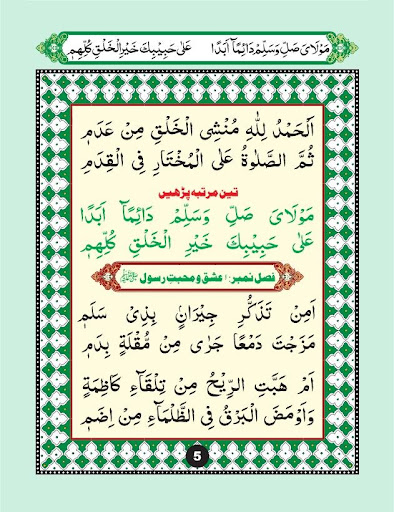 مَوْلَایَ صَلِّ وَسَلِّمْ دَائِمًا اَبَدًا عَلٰی حَبِیْبِكَ خَیْرِ الْخَلْقِ کُلِّهِمٖ
اَلْحَمْدُ لِلّٰهِ مُنْشِی الْخَلْقِ مِنْ عَدَمٖ
ثُمَّ الصَّلٰوةُ عَلَی الْمُخْتَارِ فِی الْقِدَمِ
تین مرتبہ پڑھیں
مَوْلَایَ صَلِّ وَسَلِّمْ دَائِمًا اَبَدًا
عَلٰی حَبِیْبِكَ خَیْرِ الْخَلْقِ کُلِّهِمٖ
فصل نمبر: ا عشق و محبتِ رسول ﷺ
اَمِنْ تَذَکُّرِ جِیْرَانٍ بِذِیْ سَلَمٖ
مَزَجْتَ دَمْعًا جَرٰی مِنْ مُّقْلَةٍ بِدَمٖ
اَمْ هَبَّتِ الرِّیْحُ مِنْ تِلْقَاءِ کَاظِمَةٍ
وَاَوْمَضَ الْبَرْقُ فِی الظَّلْمَاءِ مِنْ اِضَمٖ
5